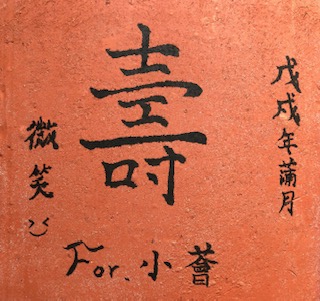 戊戌年蒲月
壽
微笑:)
For.小薈